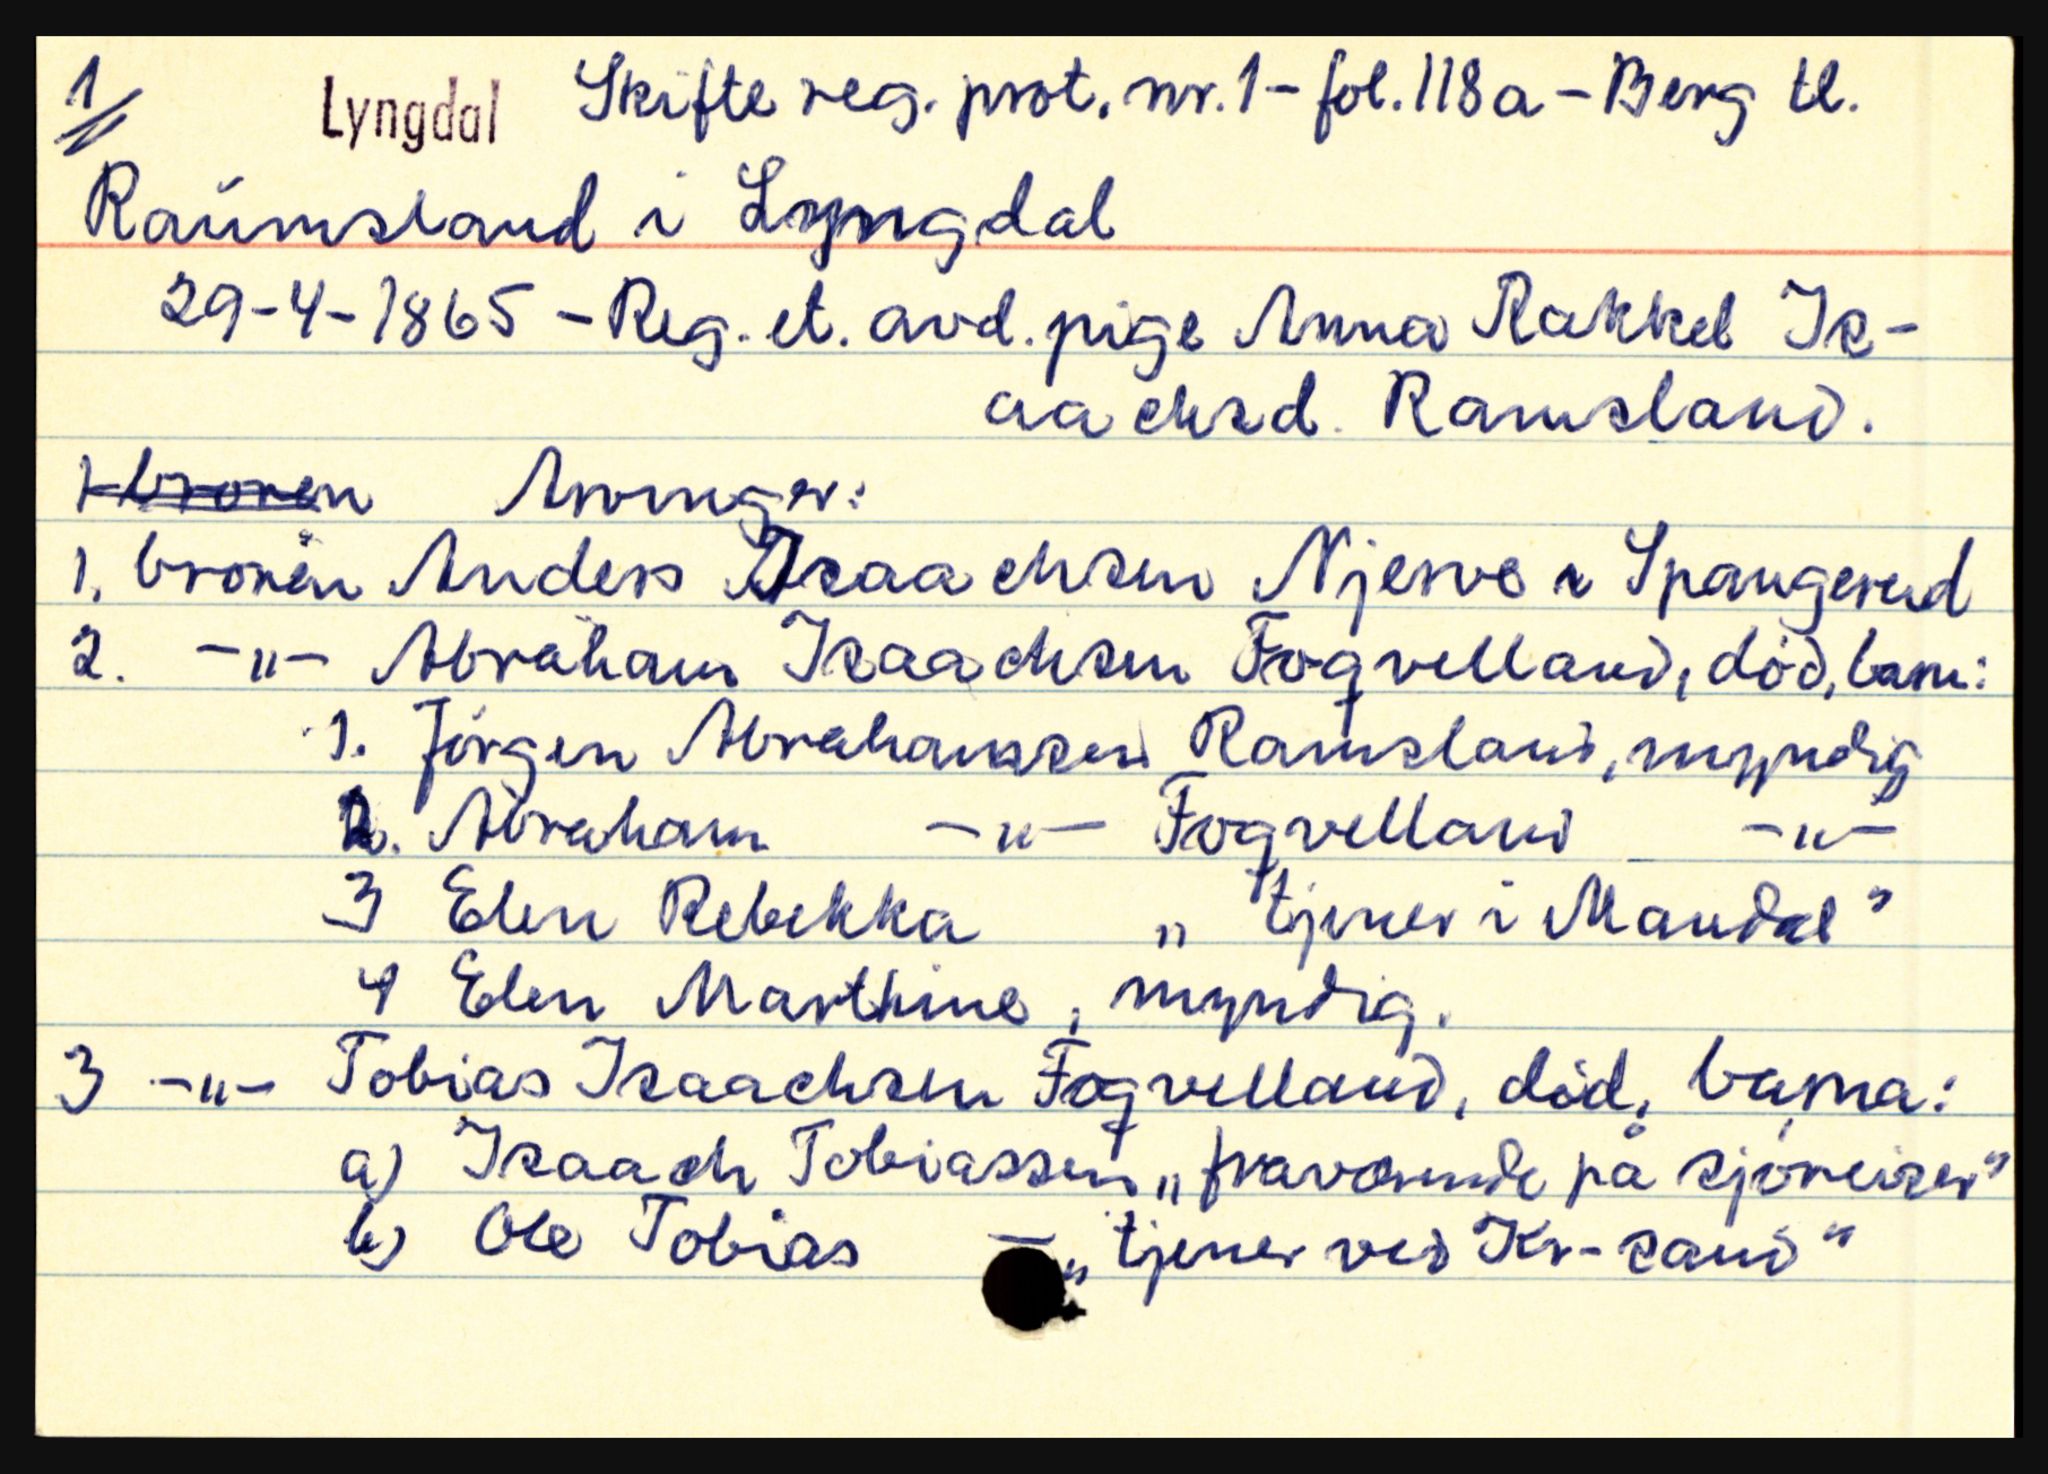 1
Lyngdal Skifte reg. prot. nr. 1 - fol. 118a - Berg tl.
Raumsland i Lyngdal
29-4-1865 - Reg. et. avd. pige Anna Rakkel Is-
aachsd. Ramsland.
1 broren Arvinger:
1. broren Anders Isaachsen Njerve i Spangereid
2. -"- Abraham Isaachsen Foqvelland, död, barn:
1. Jörgen Abrahamsen Ramsland, myndig
2. Abraham -"- Foqvelland -"-
3 Elen Rebekka „ tjener i Mandal"
4 Elen Marthine, myndig.
3 -"- Tobias Isaachsen Foqvelland, död, barna:
a) Isaach Tobiassen „fraværende på sjöreiser"
b) Ole Tobias -„- „tjener ved Kr-sand"